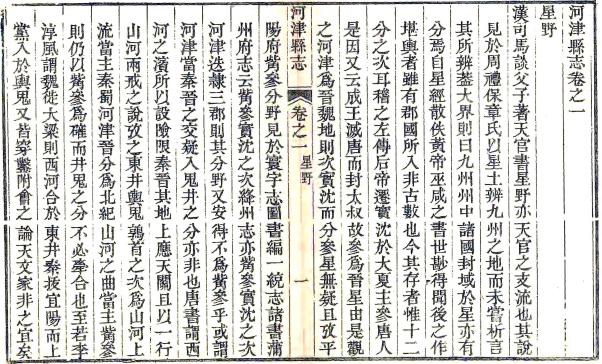 河津縣志卷之一
星野
漢司馬談父子著天官書星野亦天官之支流也其說
見於周禮保章氏以星土辨九州之地而未嘗析言
其所辨葢大界則曰九州州中諸國封域於星亦有
分焉自星經散佚黃帝巫咸之書世尠得聞後之作
堪輿者雖有郡國所入非古數也今其存者惟十二
分之次耳稽之左傳后帝遷實沈於大夏主參唐人
是因又云成王滅唐而封太叔故參為晉星由是觀
之河津為晉魏地則次實沈而分參星無疑且攷平
河津縣志 卷之一 星野 一
陽府觜參分野見於寰宇志圖書編一統志諸書蒲
州府志云觜參實沈之次絳州志亦觜參實沈之次
河津迭隸三郡則其分野又安得不為觜參乎或謂
河津當秦晉之交疑入鬼井之分亦非也唐書謂西
河之濱所以設險限秦晉其地上應天闕且以一行
山河兩戒之說攷之東井輿鬼鶉首之次為山河上
流當主秦蜀河津晉分為北紀山河之曲當主觜參
則仍以觜參為確而井鬼之分不必牽合也至若李
淳風謂魏徙大梁則西河合於東井秦拔宜陽而上
黨入於輿鬼又皆穿鑿附會之論天文家非之宜矣